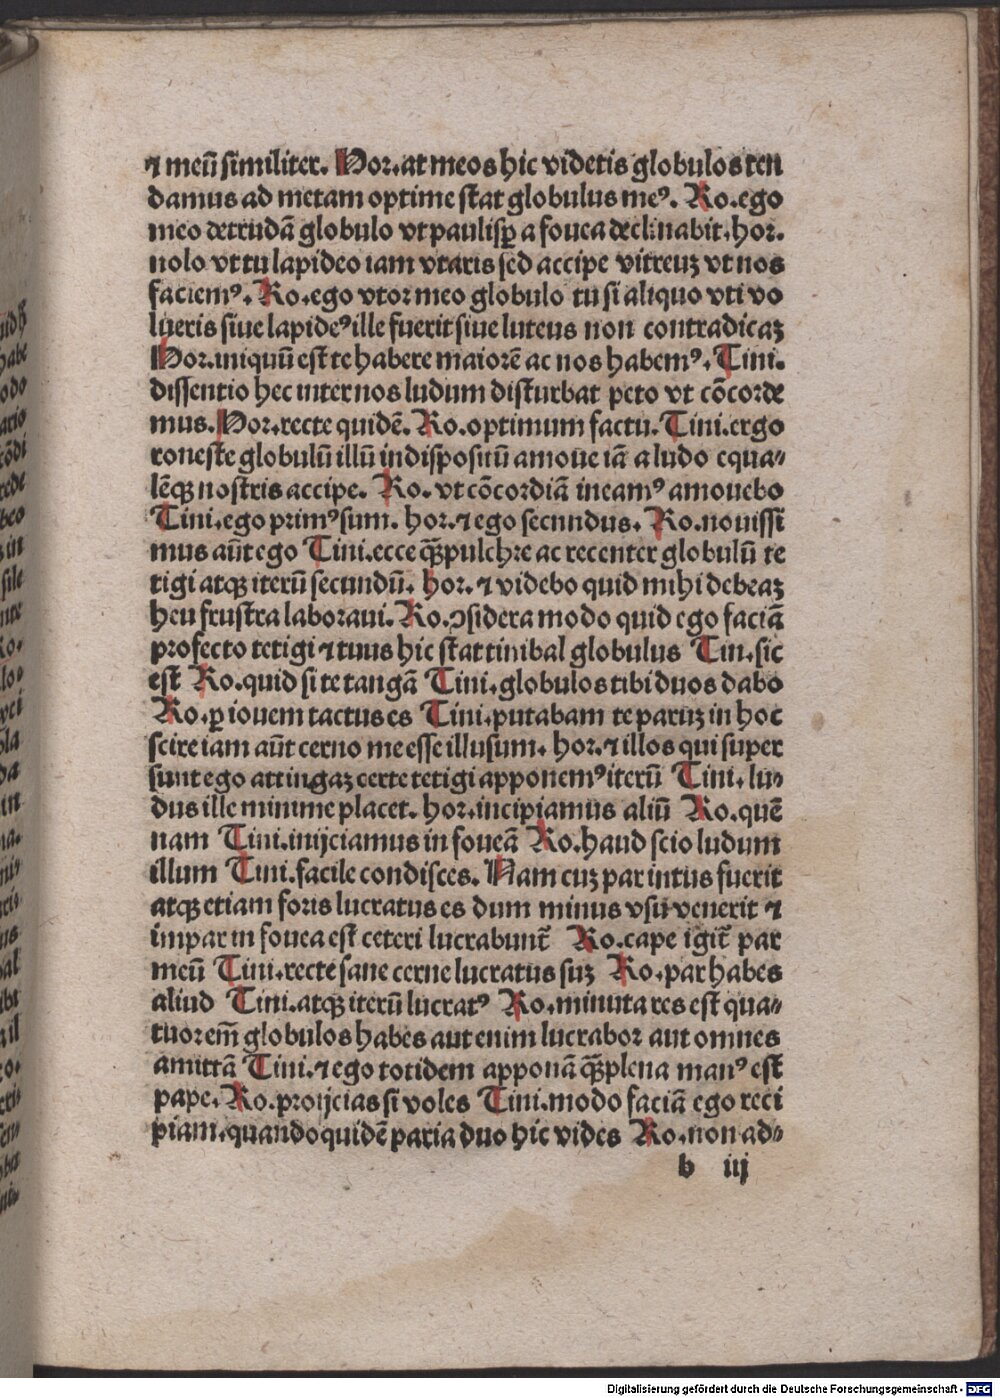 ⁊ meū similiter. Hor.at meos hic videtis globulos ten
damus ad metam optime stat globulus meꝰ. Ro.ego
meo detrudā globulo vt paulisꝑ a fouea declinabit.hor.
nolo vt tu lapideo iam vtaris sed accipe vitreuꝫ vt nos
faciemꝰ. Ro.ego vtor meo globulo tu si aliquo vti vo
lueris siue lapideꝰ ille fuerit siue luteus non contradicaꝫ
Hor.iniquū est te habere maiorē ac nos habemꝰ. Tini.
dissentio hec inter nos ludum disturbat peto vt cōcorde
mus. Hor.recte quidē. Ro.optimum factu. Tini.ergo
roneste globulū illū indispositū amoue iā a ludo equa⸗
lēqꝫ nostris accipe. Ro. vt cōcordiā ineamꝰ amouebo
Tini.ego primꝰ sum. hor.⁊ ego secundus. Ro.nouissi
mus aūt ego Tini.ecce qꝫ̄ pulchre ac recenter globulū te
tigi atqꝫ iterū secundū. hor. ⁊ videbo quid mihi debeaꝫ
heu frustra laboraui. Ro.ↄsidera modo quid ego faciā
profecto tetigi ⁊ tuus hic stat tinibal globulus Tin.sic
est Ro.quid si te tangā Tini.globulos tibi duos dabo
Ro.ꝑ iouem tactus es Tini.putabam te paruꝫ in hoc
scire iam aūt cerno me esse illusum. hor.⁊ illos qui super
sunt ego attingaꝫ certe tetigi apponemꝰ iterū Tini.lu⸗
dus ille minime placet. hor.incipiamus aliū Ro.quē
nam Tini.inijciamus in foueā Ro.haud scio ludum
illum Tini.facile condisces. Nam cuꝫ par intus fuerit
atqꝫ etiam foris lucratus es dum minus vsu venerit ⁊
impar in fouea est ceteri lucrabunt̄ Ro.cape igit̄ par
meū Tini.recte sane cerne lucratus suꝫ Ro.par habes
aliud Tini.atqꝫ iterū lucratꝰ Ro.minuta res est qua⸗
tuor em̄ globulos habes aut enim lucrabor aut omnes
amittā Tini.⁊ ego totidem apponā qꝫ̄ plena manꝰ est
pape. Ro.proijcias si voles Tini.modo faciā ego reci
piam.quandoquidē paria duo hic vides Ro.non ad⸗
b iij
Digitalisierung gefördert durch die Deutsche Forschungsgemeinschaft - DFG